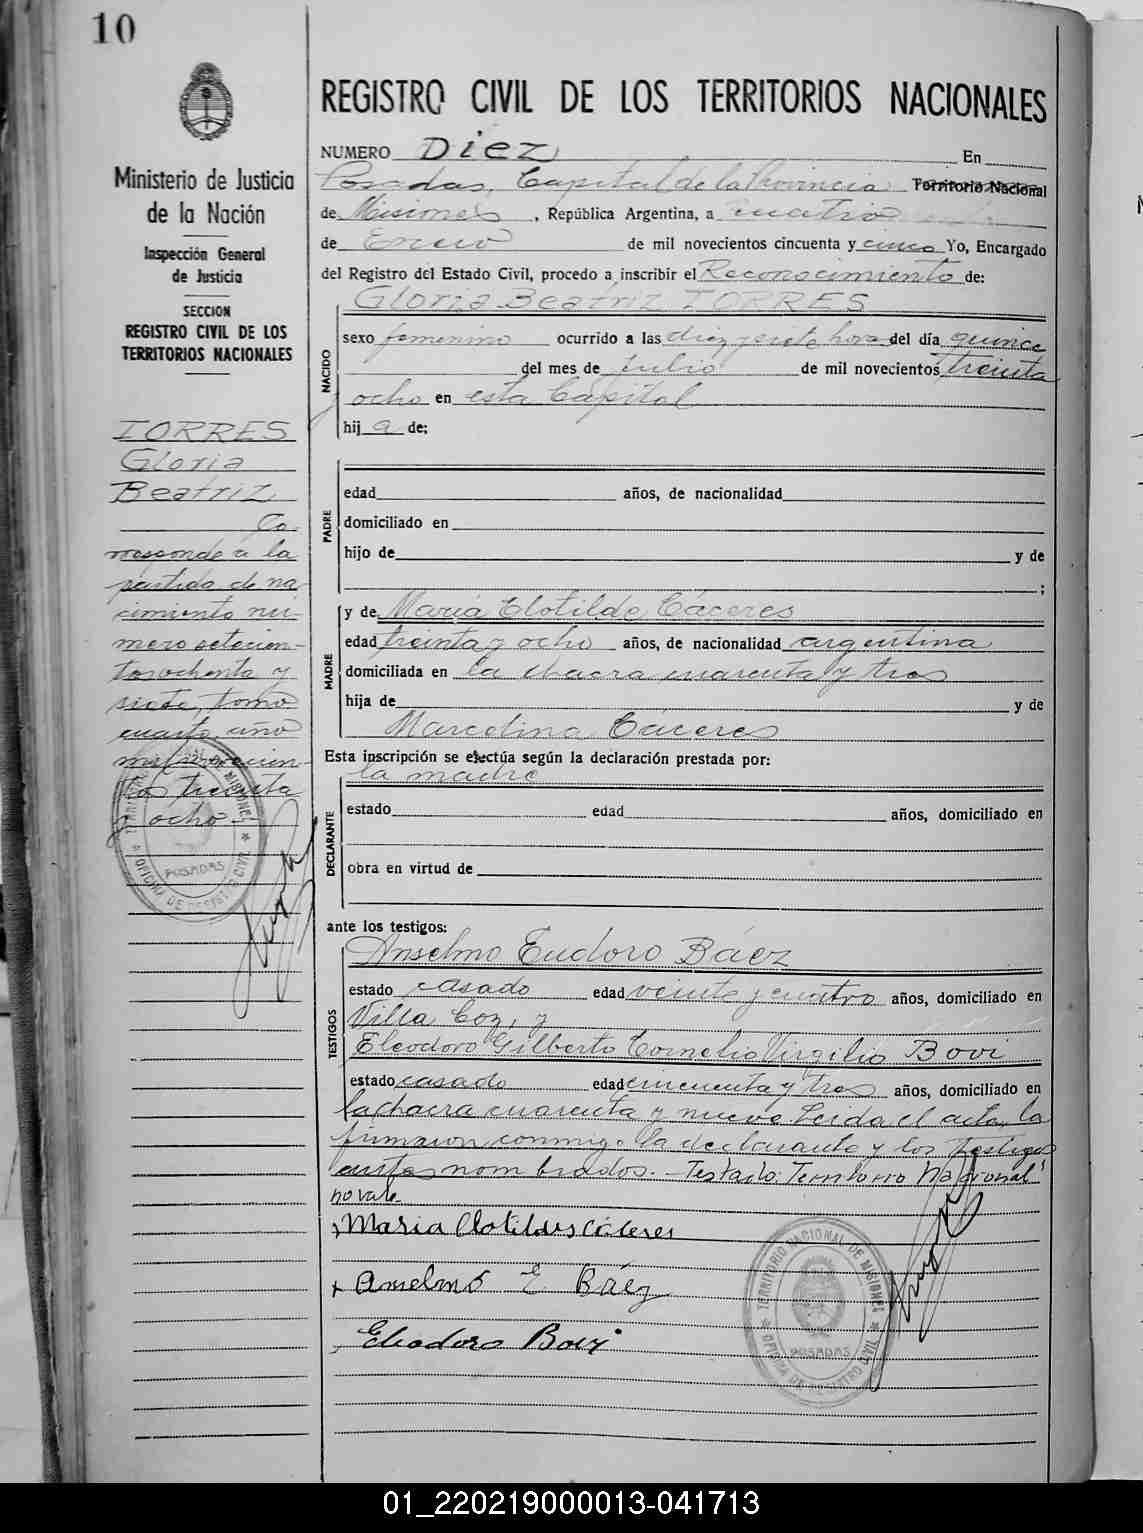 10
Ministerio de Justicia
de la Nación
Inspección General
de Justicia
SECCION
REGISTRO CIVIL DE LOS
TERRITORIOS NACIONALES
TORRES
Gloria
Beatriz
Co
rresponde a la
partida de na
cimiento nú-
mero setecien-
tos ochenta y
siete, tomo
cuarto, año
mil novecien-
tos treinta
y ocho-
REGISTRO CIVIL DE LOS TERRITORIOS NACIONALES
NUMERO Diez En
Posadas, Capital de la Provincia Territorio Nacional
de Misiones, República Argentina, a cuatro
de Enero de mil novecientos cincuenta y cinco Yo, Encargado
del Registro del Estado Civil, procedo a inscribir el Reconocimiento de:
Gloria Beatriz TORRES
NACIDO
sexo femenino ocurrido a las diez y siete horas del día quince
del mes de Julio de mil novecientos treinta
y ocho en esta Capital
hij a de:
PADRE
edad años, de nacionalidad
domiciliado en
hijo de y de
;
MADRE
y de María Clotilde Cáceres
edad treinta y ocho años, de nacionalidad argentina
domiciliada en la chacra cuarenta y tres
hija de y de
Marcelina Cáceres
Esta inscripción se efectúa según la declaración prestada por:
la madre
DECLARANTE
estado edad años, domiciliado en
obra en virtud de
ante los testigos:
TESTIGOS
Anselmo Eudoro Báez
estado casado edad veinte y cuatro años, domiciliado en
Villa Coz, y
Eleodoro Gilberto Cornelio Virgilio Bovi
estado casado edad cincuenta y tres años, domiciliado en
la chacra cuarenta y nueve Leida el acta, la
firmaron conmigo la declarante y los testigos
antes nombrados.- Testado: Territorio Nacional
no vale-
Maria Clotildes Cáceres
Anselmo E Báez
Eleodoro Bovi
TERRITORIO NACIONAL DE MISIONES
POSADAS
OFICINA DE REGISTRO CIVIL
01_220219000013-041713